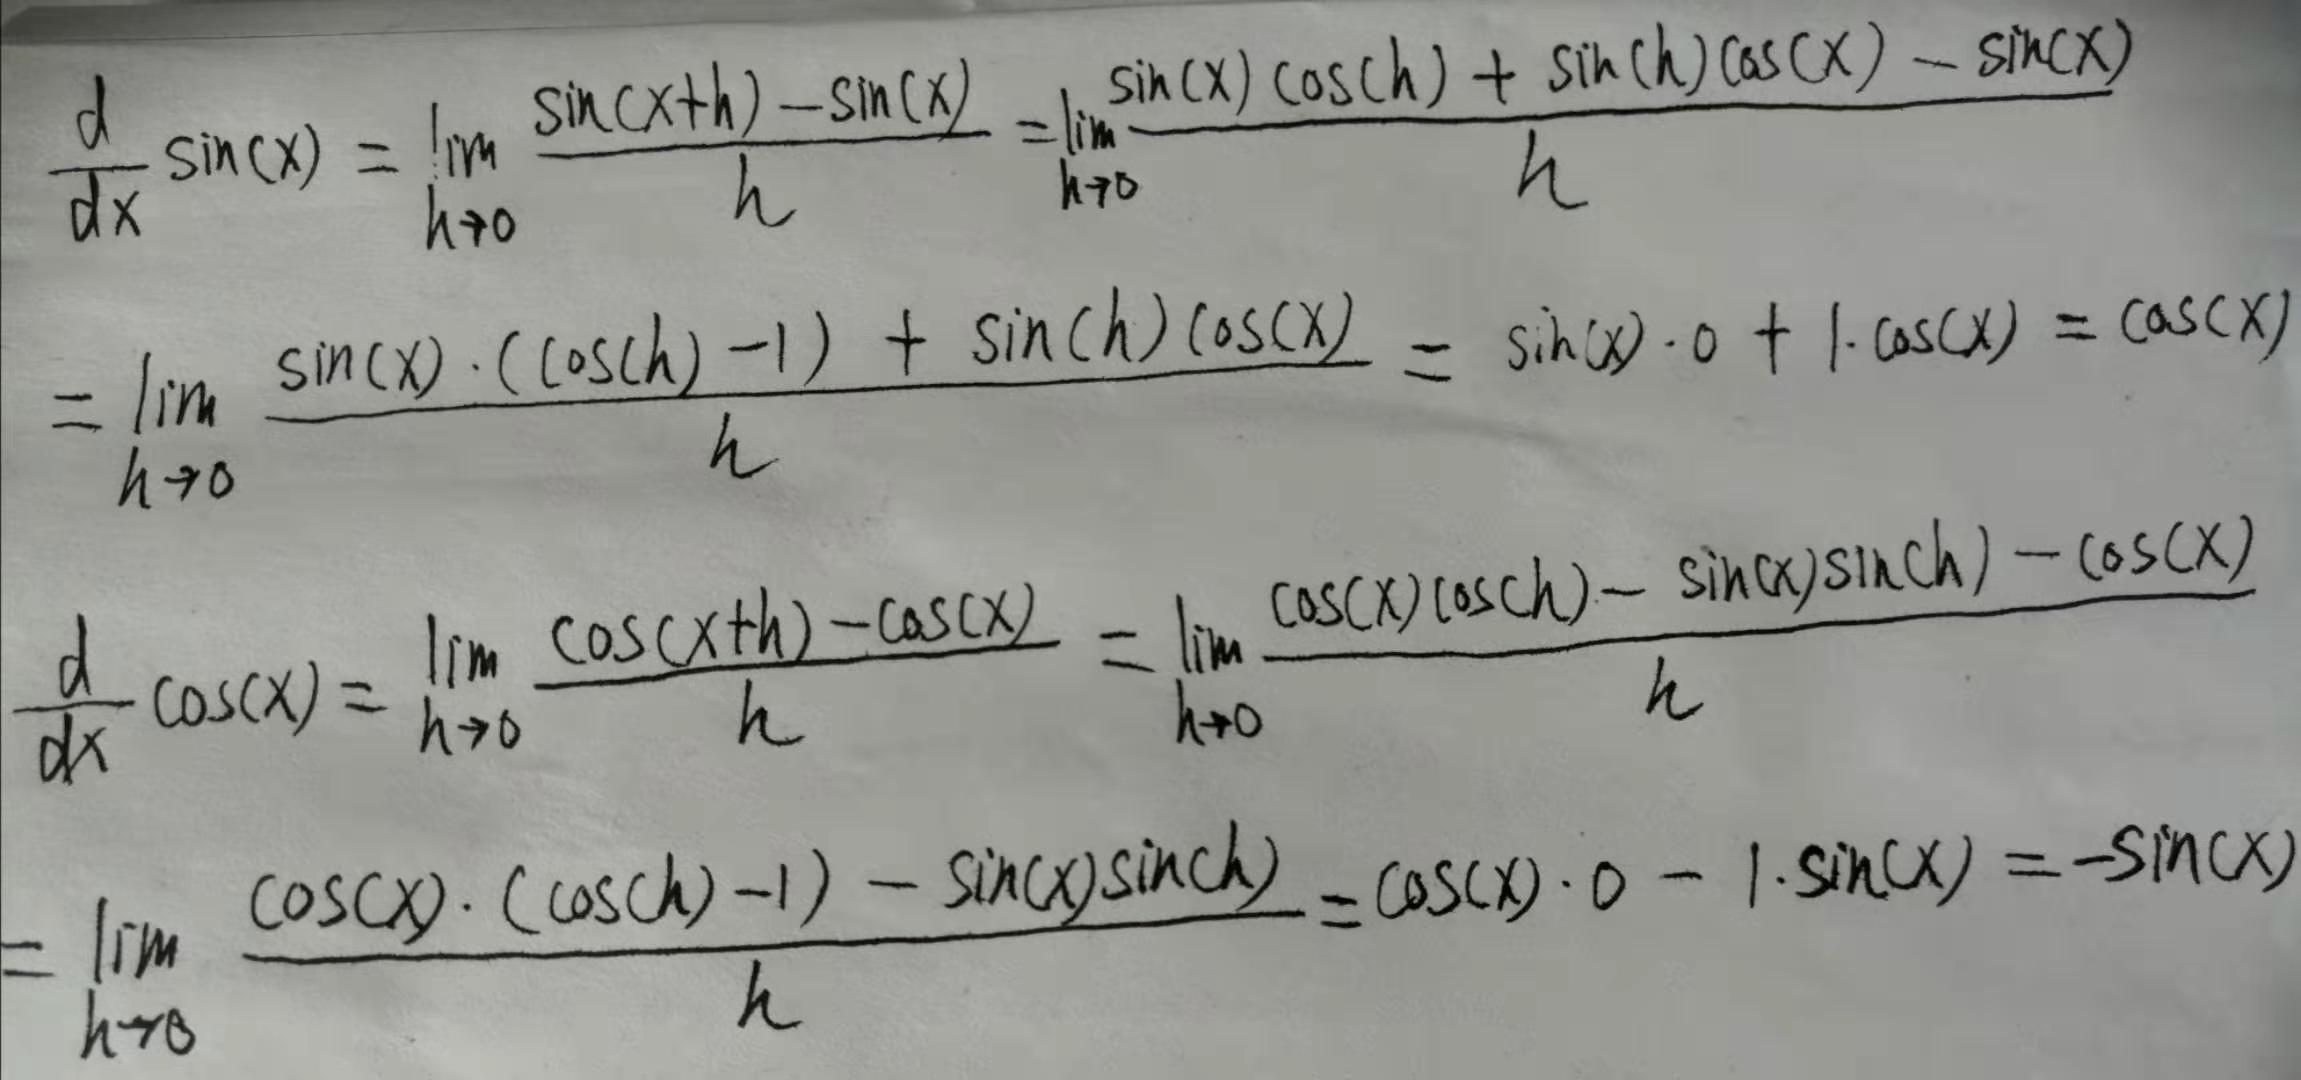 $\frac{d}{dx} \sin(x) = \lim_{h \to 0} \frac{\sin(x+h) - \sin(x)}{h} = \lim_{h \to 0} \frac{\sin(x)\cos(h) + \sin(h)\cos(x) - \sin(x)}{h}$
$= \lim_{h \to 0} \frac{\sin(x) \cdot (\cos(h) - 1) + \sin(h)\cos(x)}{h} = \sin(x) \cdot 0 + 1 \cdot \cos(x) = \cos(x)$
$\frac{d}{dx} \cos(x) = \lim_{h \to 0} \frac{\cos(x+h) - \cos(x)}{h} = \lim_{h \to 0} \frac{\cos(x)\cos(h) - \sin(x)\sin(h) - \cos(x)}{h}$
$= \lim_{h \to 0} \frac{\cos(x) \cdot (\cos(h) - 1) - \sin(x)\sin(h)}{h} = \cos(x) \cdot 0 - 1 \cdot \sin(x) = -\sin(x)$